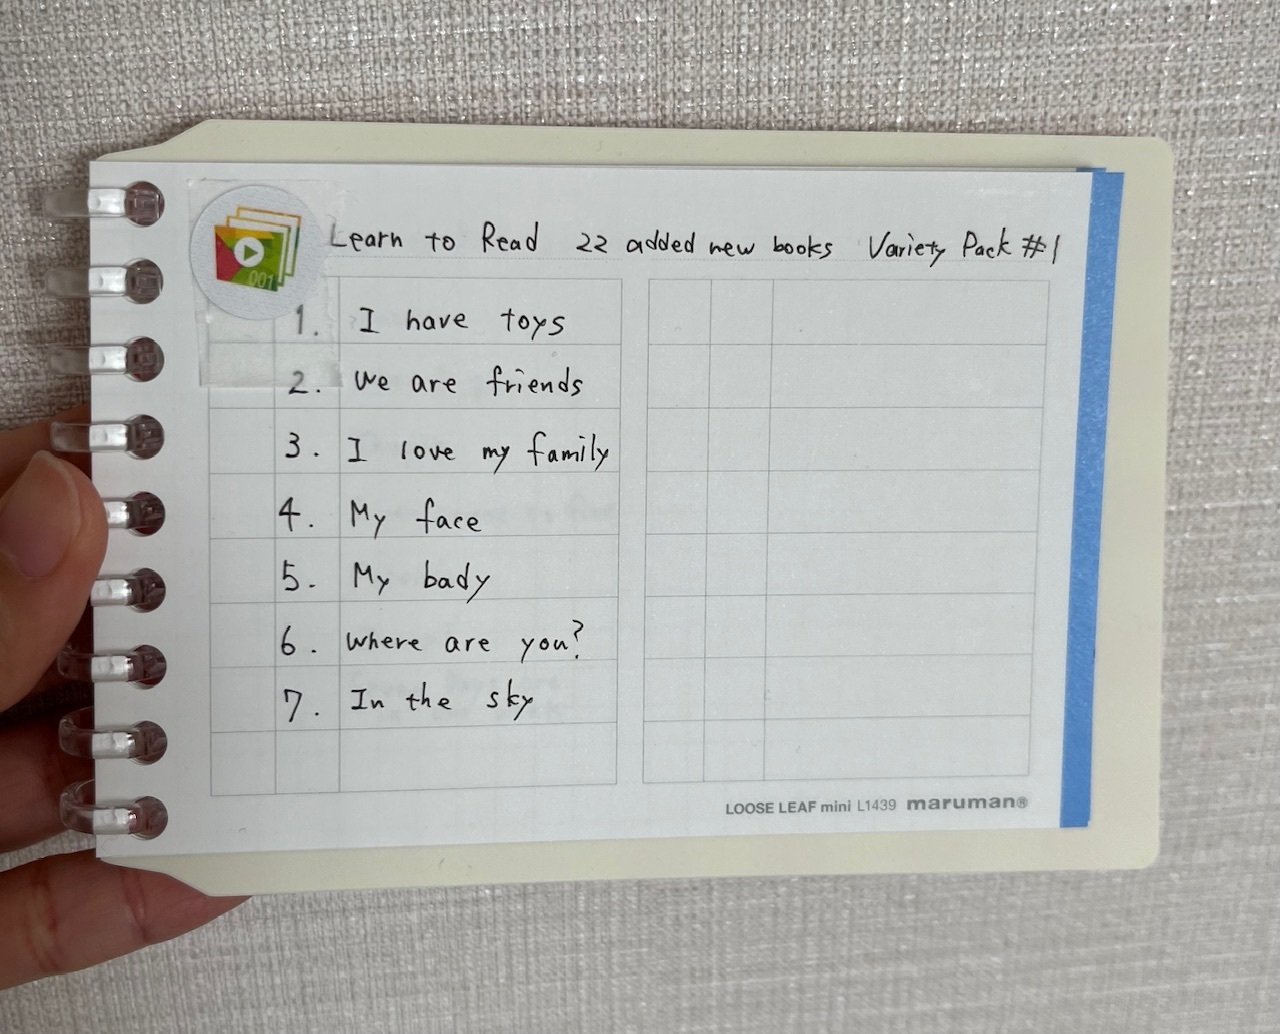 Learn to Read 22 added new books Variety Pack #1
001
1. I have toys
2. We are friends
3. I love my family
4. My face
5. My bady
6. Where are you?
7. In the sky
LOOSE LEAF mini L1439 maruman®